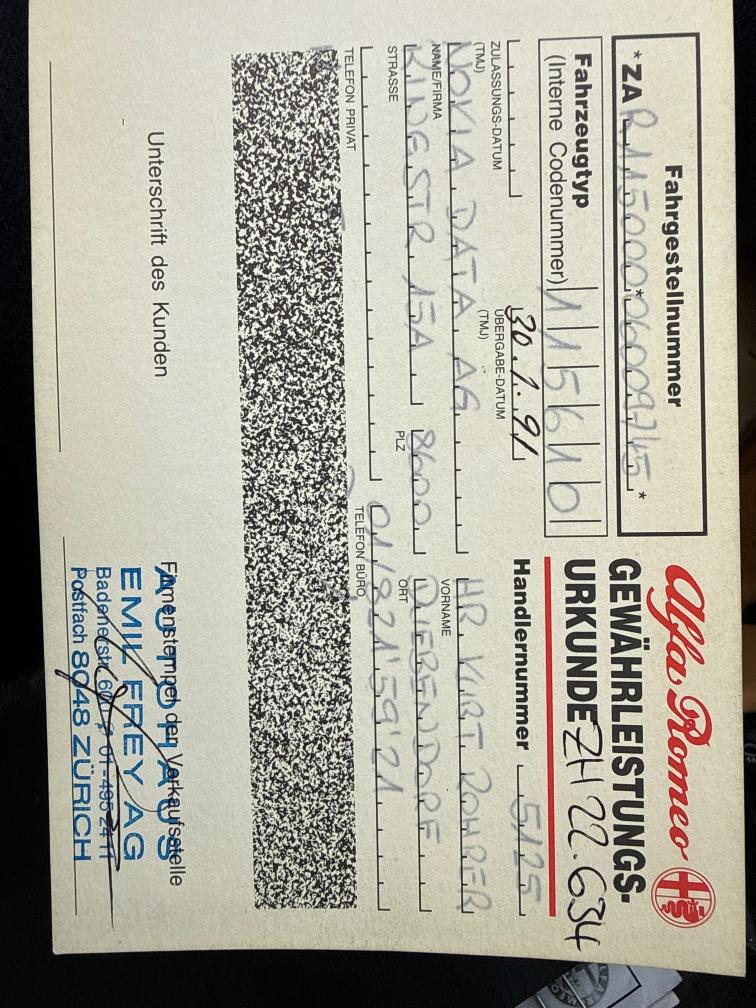 Fahrgestellnummer
*ZAR115000*06009745*
Fahrzeugtyp
(Interne Codenummer) 115610
Alfa Romeo
GEWÄHRLEISTUNGS-
URKUNDE ZH 22.634
Handlernummer 5125
30.1.91
ZULASSUNGS-DATUM
(TMJ)
ÜBERGABE-DATUM
(TMJ)
NOVIA DATA AG HR. KURT ROHRER
NAME/FIRMA VORNAME
RINGSTR. 15A 8600 DUEBENDORF
STRASSE PLZ ORT
01/821'59'21
TELEFON PRIVAT TELEFON BÜRO
Unterschrift des Kunden
Firmenstempel der Verkaufsstelle
AUTOHAUS
EMIL FREY AG
Badenerstr. 01-495 24 11
Postfach 8048 ZÜRICH